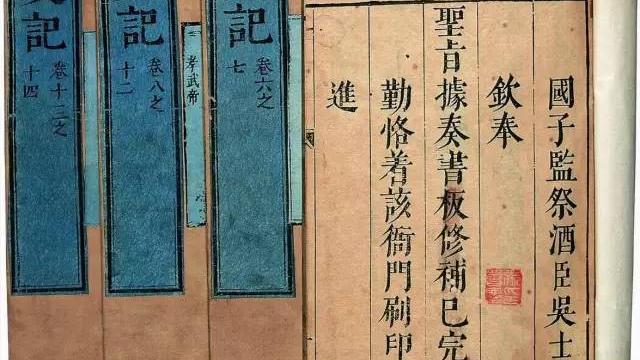 國子監祭酒臣吳士
欽奉
聖旨據奏書板修補已完
勤恪着該衙門刷印
進
記
卷六之
七
孝武帝
記
卷八之
十二
史記
卷十三之
十四